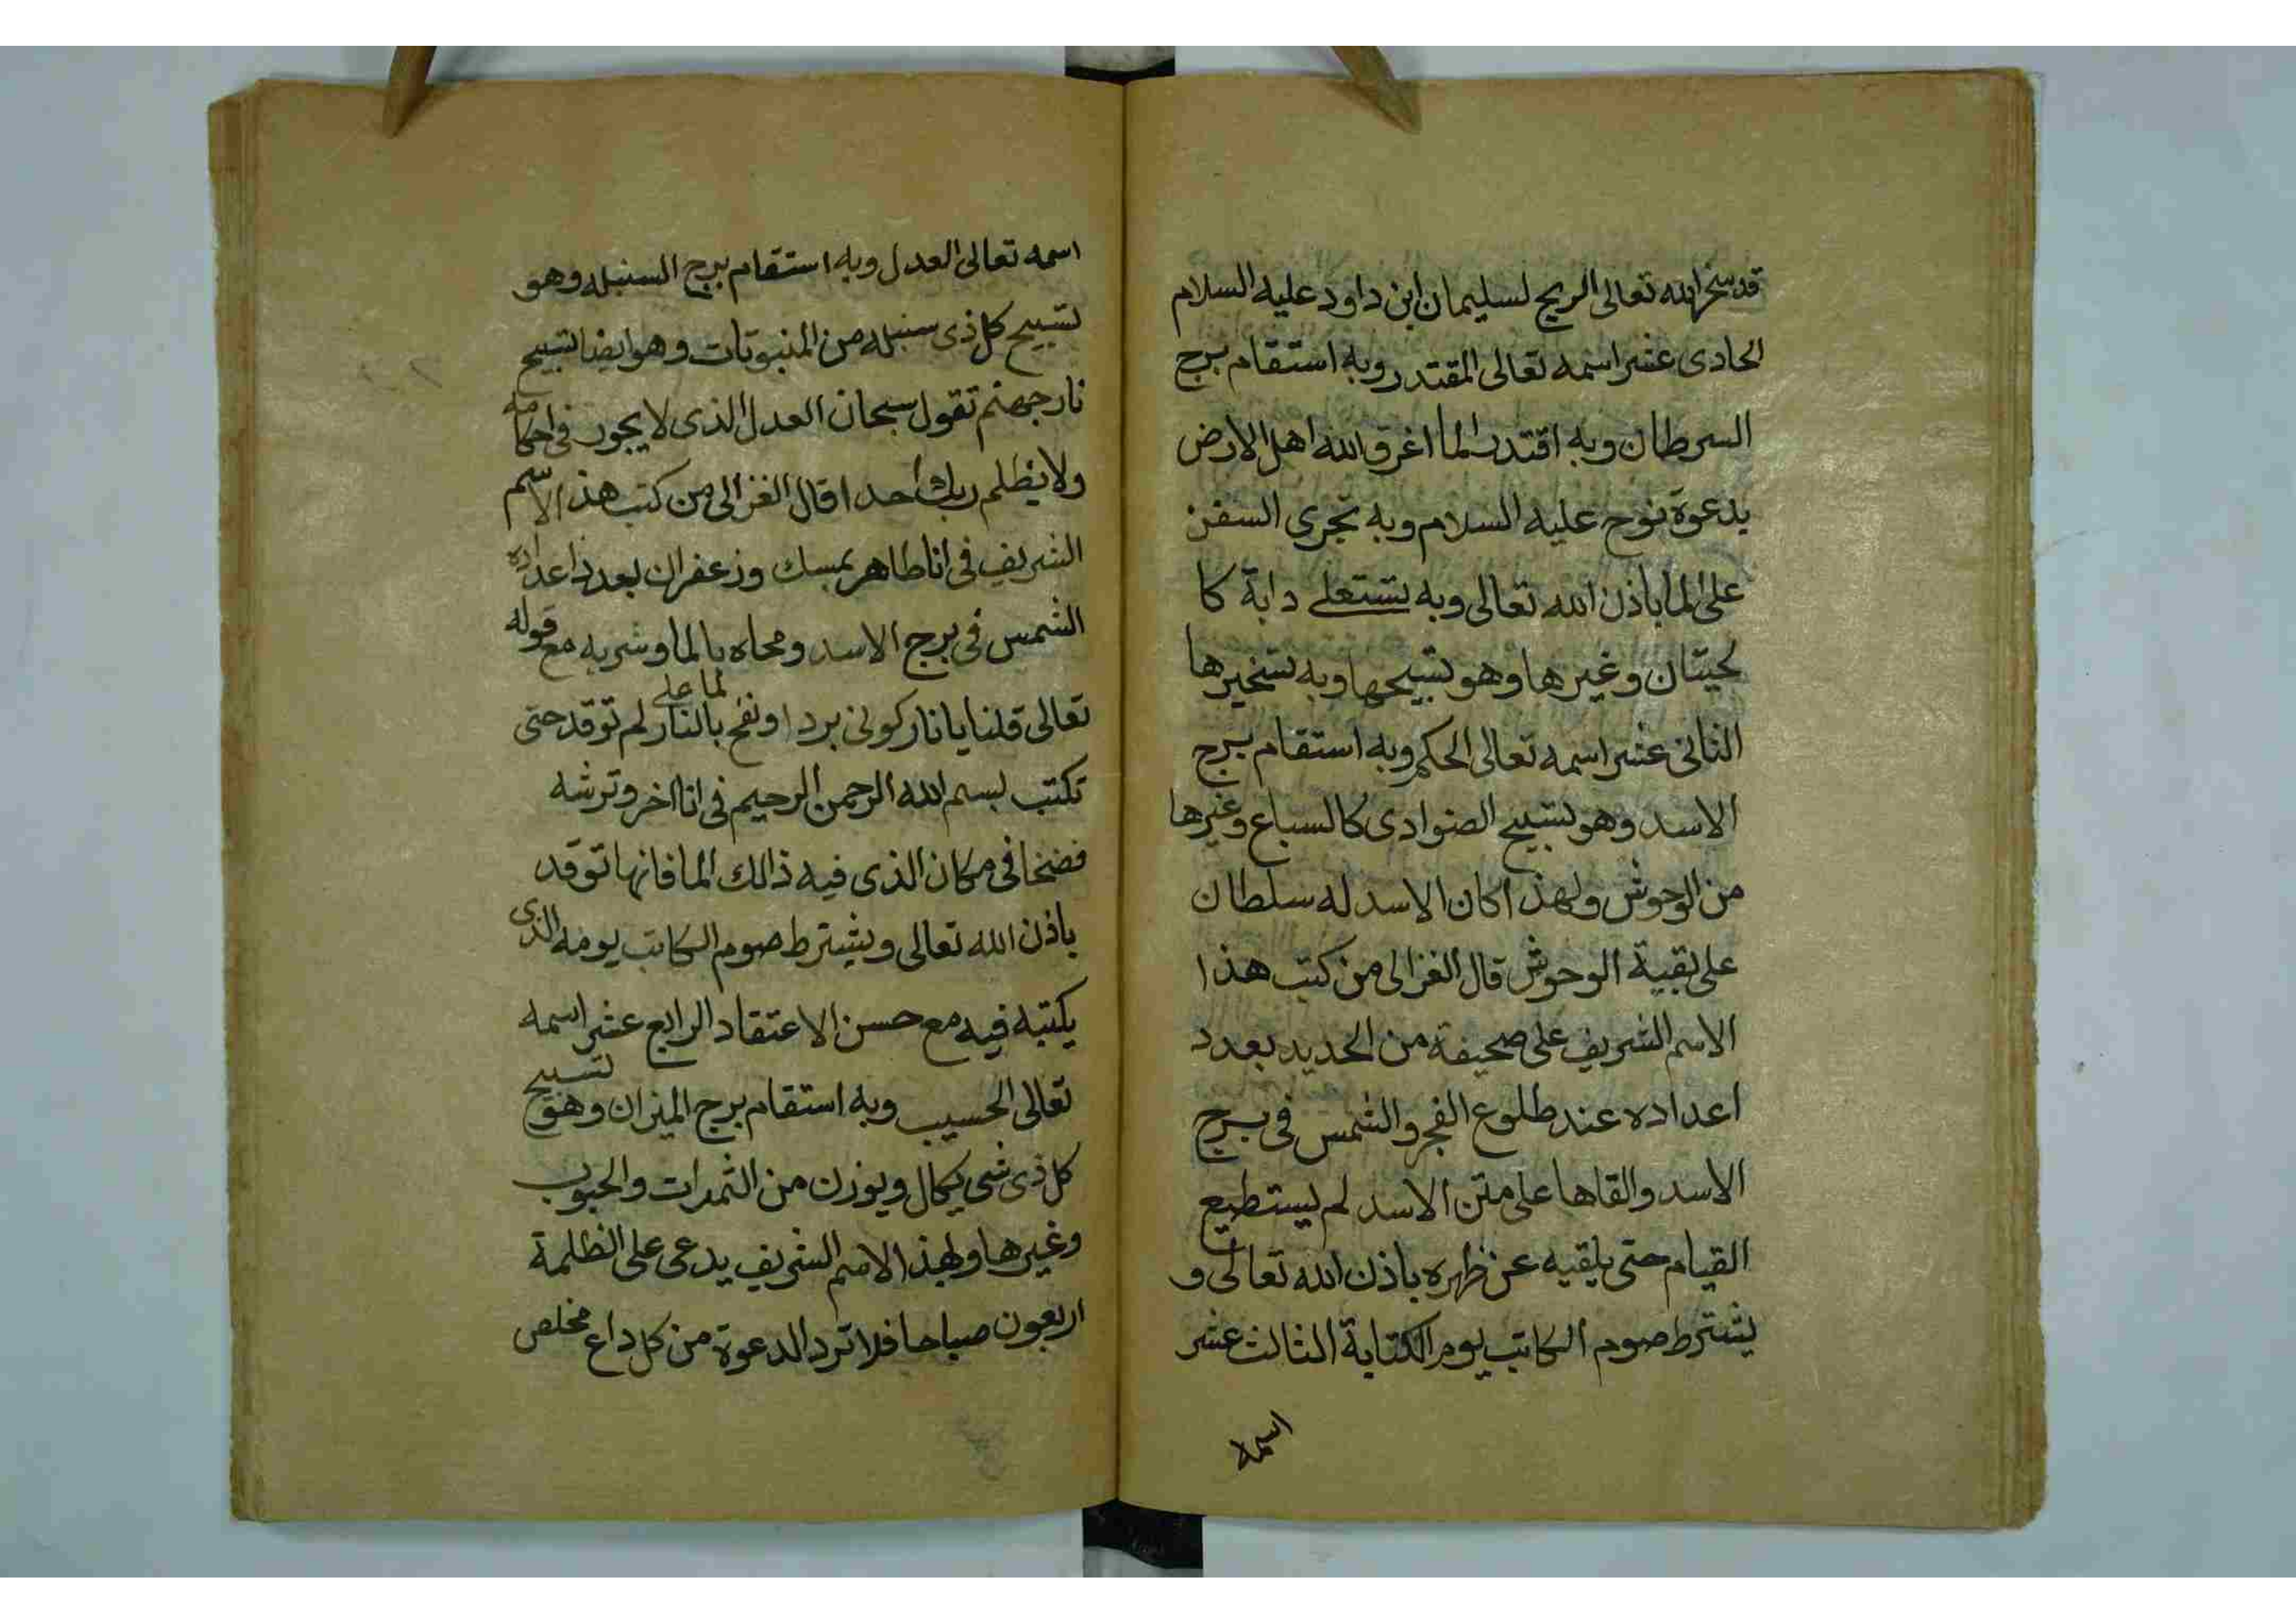 قد سخر الله تعالى الريح لسليمان ابن داود عليه السلام
الحادى عشر اسمه تعالى المقتدر وبه استقام برج
السرطان وبه اقتدر الما اغرق الله اهل الارض
بدعوة نوح عليه السلام وبه تجرى السفن
على الما باذن الله تعالى وبه تستعلى دابة كا
لحيتان وغيرها وهو تسبيحها وبه تسخيرها
الثانى عشر اسمه تعالى الحكم وبه استقام برج
الاسد وهو تسبيح الضوادى كالسباع وغيرها
من الوحوش ولهذا كان الاسد له سلطان
على بقية الوحوش قال الغزالى من كتب هذا
الاسم الشريف على صحيفة من الحديد بعدد
اعداده عند طلوع الفجر والشمس فى برج
الاسد والقاها على متن الاسد لم يستطيع
القيام حتى يلقيه عن ظهره باذن الله تعالى و
يشترط صوم الكاتب يوم الكتابة الثالث عشر
اسمه
اسمه تعالى العدل وبه استقام برج السنبله وهو
تسبيح كل ذى سنبله من المنبوتات وهو ايضا تسبيح
نار جهنم تقول سبحان العدل الذى لا يجور فى احكامه
ولا يظلم ربك احدا قال الغزالى من كتب هذا الاسم
الشريف فى انا طاهر بمسك وزعفران بعدد اعداده
الشمس فى برج الاسد ومحاه بالما وشربه مع قوله
تعالى قلنا يا نار كونى بردا ونفخ بالنار لما على لم توقد حتى
تكتب بسم الله الرحمن الرحيم فى انا اخر وترشه
فضخا فى مكان الذى فيه ذالك الما فانها توقد
باذن الله تعالى ويشترط صوم الكاتب يومه الذى
يكتبه فيه مع حسن الاعتقاد الرابع عشر اسمه
تعالى الحسيب وبه استقام برج الميزان وهو تسبيح
كل ذى شى يكال ويوزن من الثمرات والحبوب
وغيرها وبهذا الاسم الشريف يدعى على الظلمة
اربعون صباحا فلا ترد الدعوة من كل داع مخلص